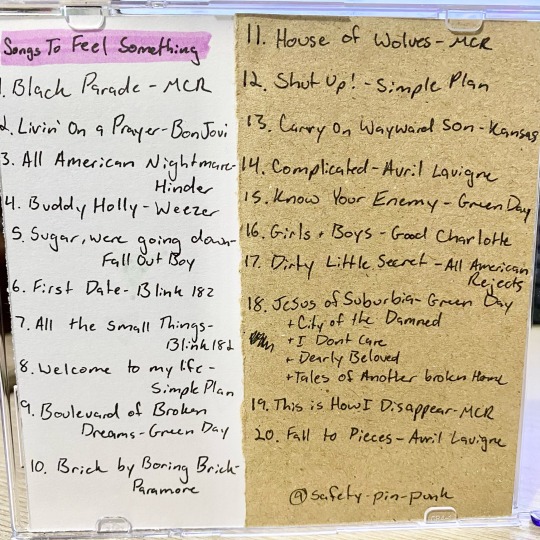 Songs To Feel Something
1. Black Parade - MCR
2. Livin' On a Prayer - Bon Jovi
3. All American Nightmare -
Hinder
4. Buddy Holly - Weezer
5. Sugar, were going down -
Fall Out Boy
6. First Date - Blink 182
7. All the small Things -
Blink 182
8. Welcome to my life -
Simple Plan
9. Boulevard of Broken
Dreams - Green Day
10. Brick by Boring Brick -
Paramore
11. House of Wolves - MCR
12. Shut Up! - Simple Plan
13. Carry On Wayward Son - Kansas
14. Complicated - Avril Lavigne
15. Know Your Enemy - Green Day
16. Girls + Boys - Good Charlotte
17. Dirty Little Secret - All American
Rejects
18. Jesus of Suburbia - Green Day
+ City of the Damned
+ I Dont Care
+ Dearly Beloved
+ Tales of Another broken Home
19. This is How I Disappear - MCR
20. Fall to Pieces - Avril Lavigne
@safety-pin-punk